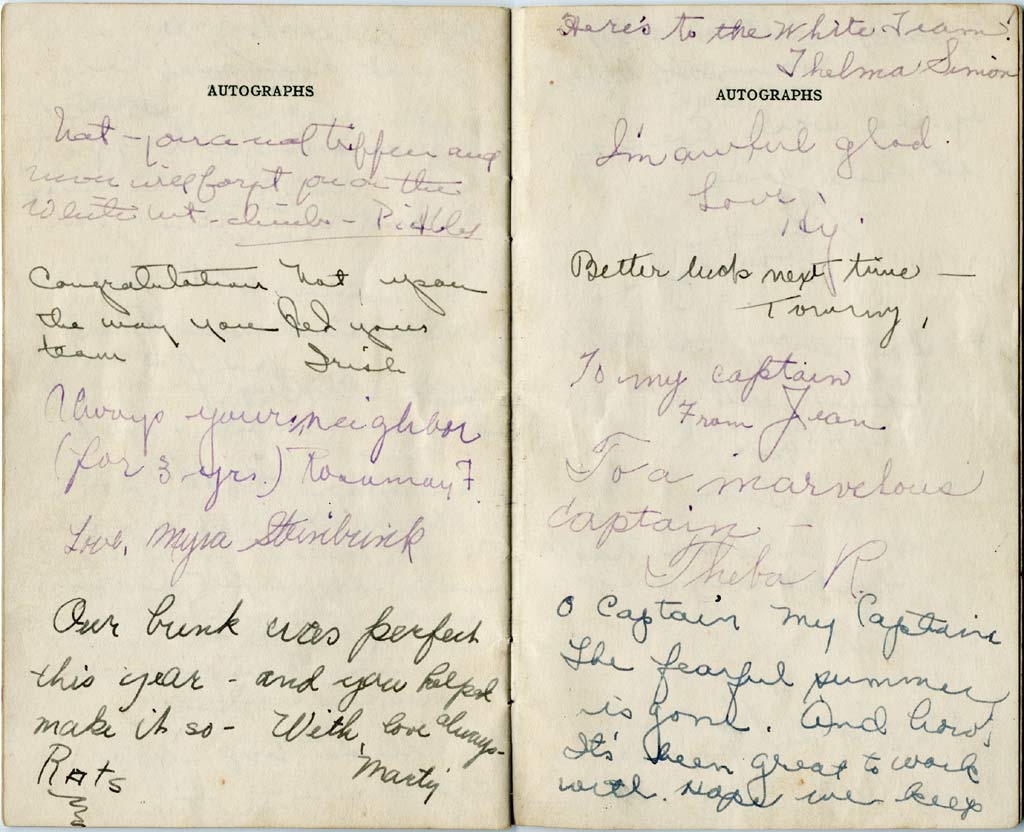 AUTOGRAPHS
Nat - you're a real and
never will forget you or the
White Mt - climbs -
Congratulation, Nat, upon
the way you led your
team Irish
Always your neighbor
(for 3 yrs.) Rosemary F.
Love, Myra Steinbrink
Our bunk was perfect
this year - and you helped
make it so - With love always -
Rats Marty
Here's to the White Team!
Thelma Simon
AUTOGRAPHS
I'm awful glad.
Love,
Better luck next time —
Tommy,
To my captain
From Jean
To a marvelous
captain -
Theba R.
O Captain my Captain
The fearful summer
is gone. And how!
It's been great to work
with. Hope we keep